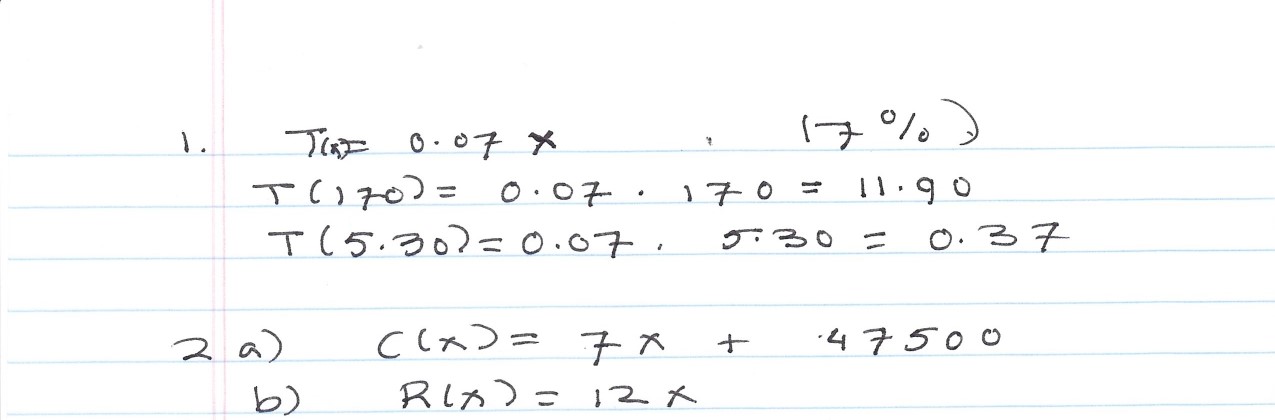 1. T(x)= 0.07 x (7%)
T(170) = 0.07 . 170 = 11.90
T(5.30) = 0.07 . 5.30 = 0.37
2 a) C(x) = 7x + 47500
b) R(x) = 12x